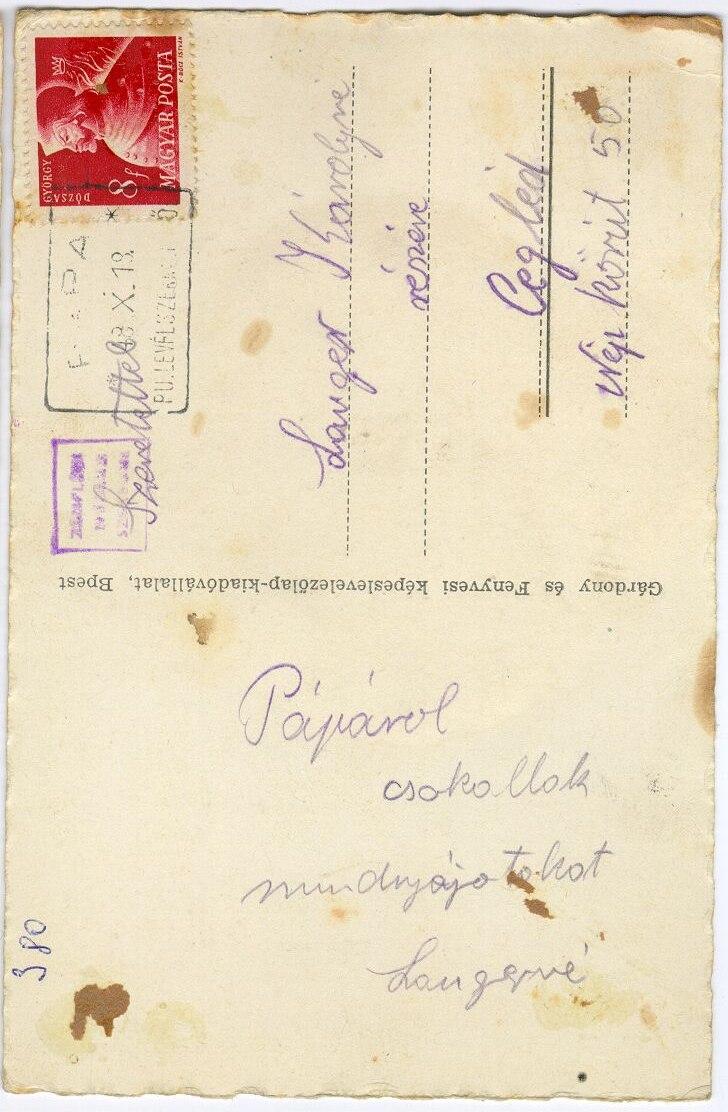 DÓZSA GYÖRGY
8f
MAGYAR POSTA
X. 18.
Szeretettel
Langer Károlyné
részére
Cegléd
Nép körút 50
Gárdony és Fenyvesi képeslevelezőlap-kiadóvállalat, Bpest
Pápárol
csokollak
mindnyájatokat
Langerné
380